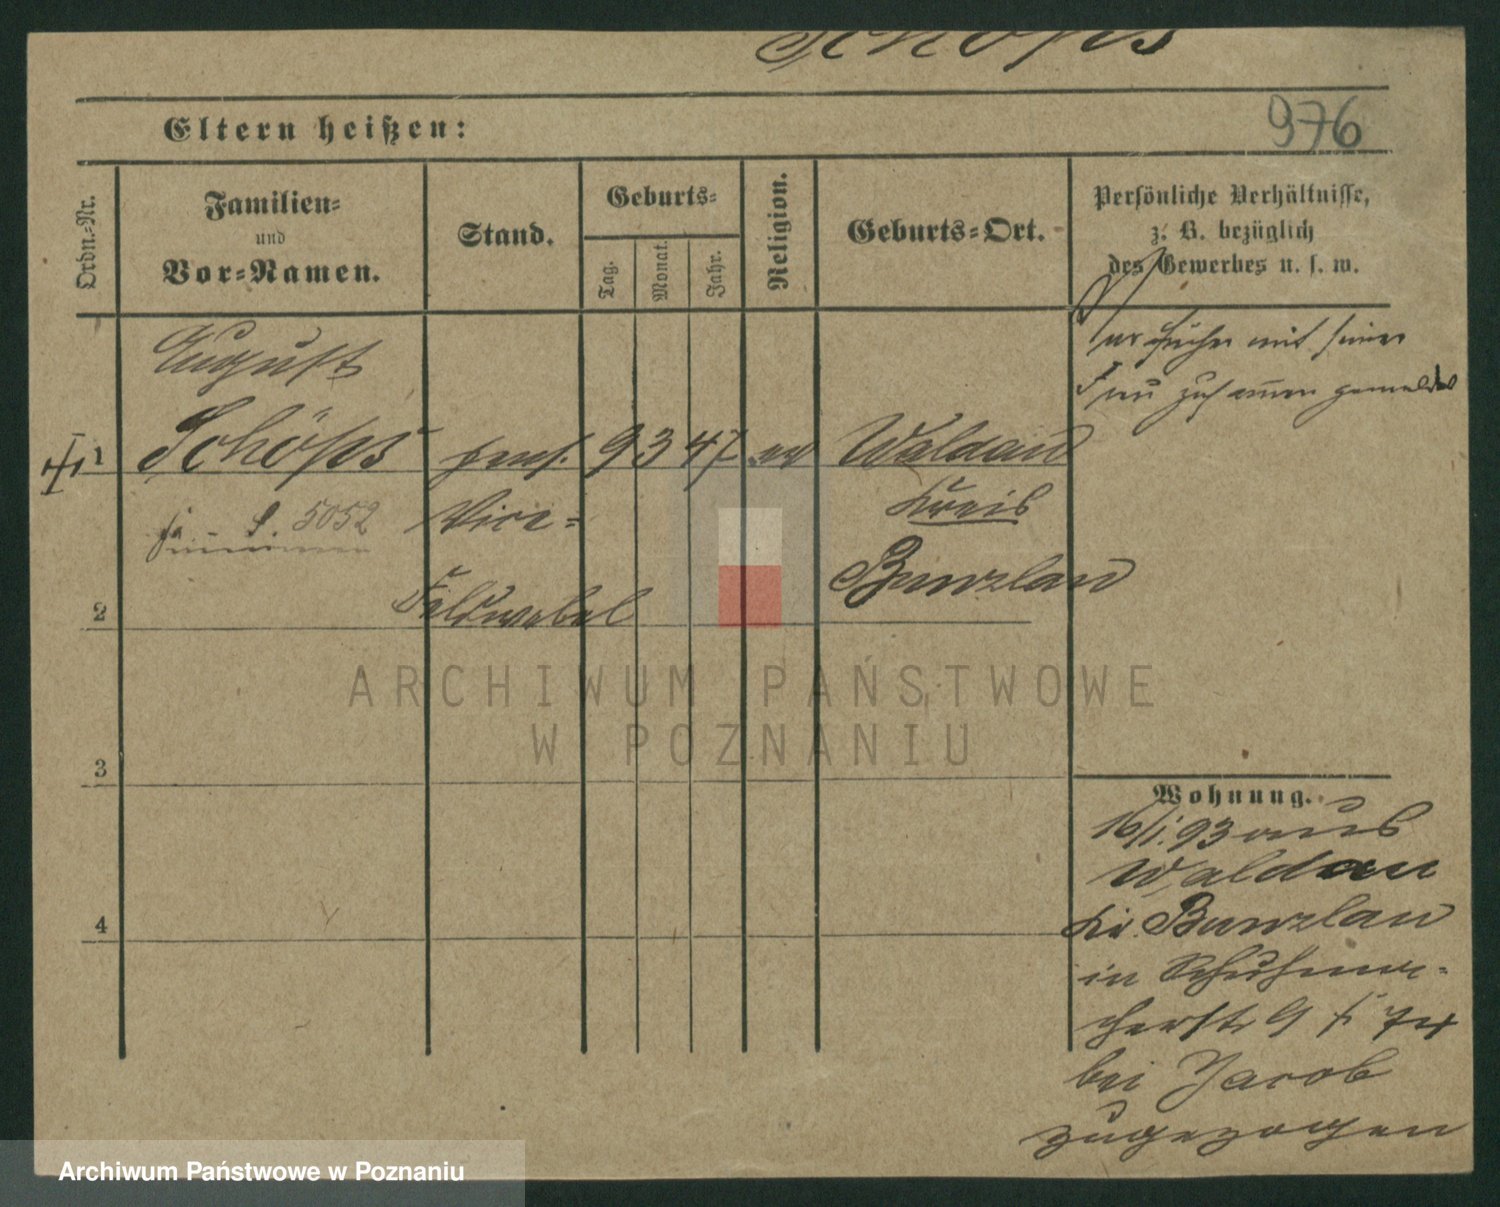 Schöps
Eltern heißen:
976
Ordn.-Nr.
Familien-
und
Vor-Namen.
Stand.
Geburts-
Tag.
Monat.
Jahr.
Religion.
Geburts-Ort.
Persönliche Verhältnisse,
z. B. bezüglich
des Gewerbes u. s. w.
August
früher mit seiner
Frau zusammen gemeldet
1 Schöps pens. 9 3 47 ev Waldau
5052 Vice- Kreis
Feldwebel Bunzlau
2
3
4
Wohnung.
16/1. 93 aus
Waldau
Kr. Bunzlau
in Schuhma-
cherstr 9
bei Jacob
zugezogen
ARCHIWUM PAŃSTWOWE
W POZNANIU
Archiwum Państwowe w Poznaniu